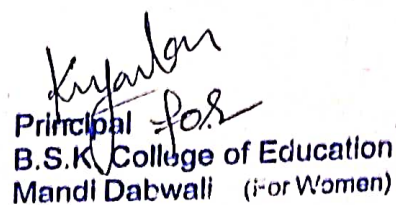 Principal for
B.S.K. College of Education
Mandi Dabwali (For Women)